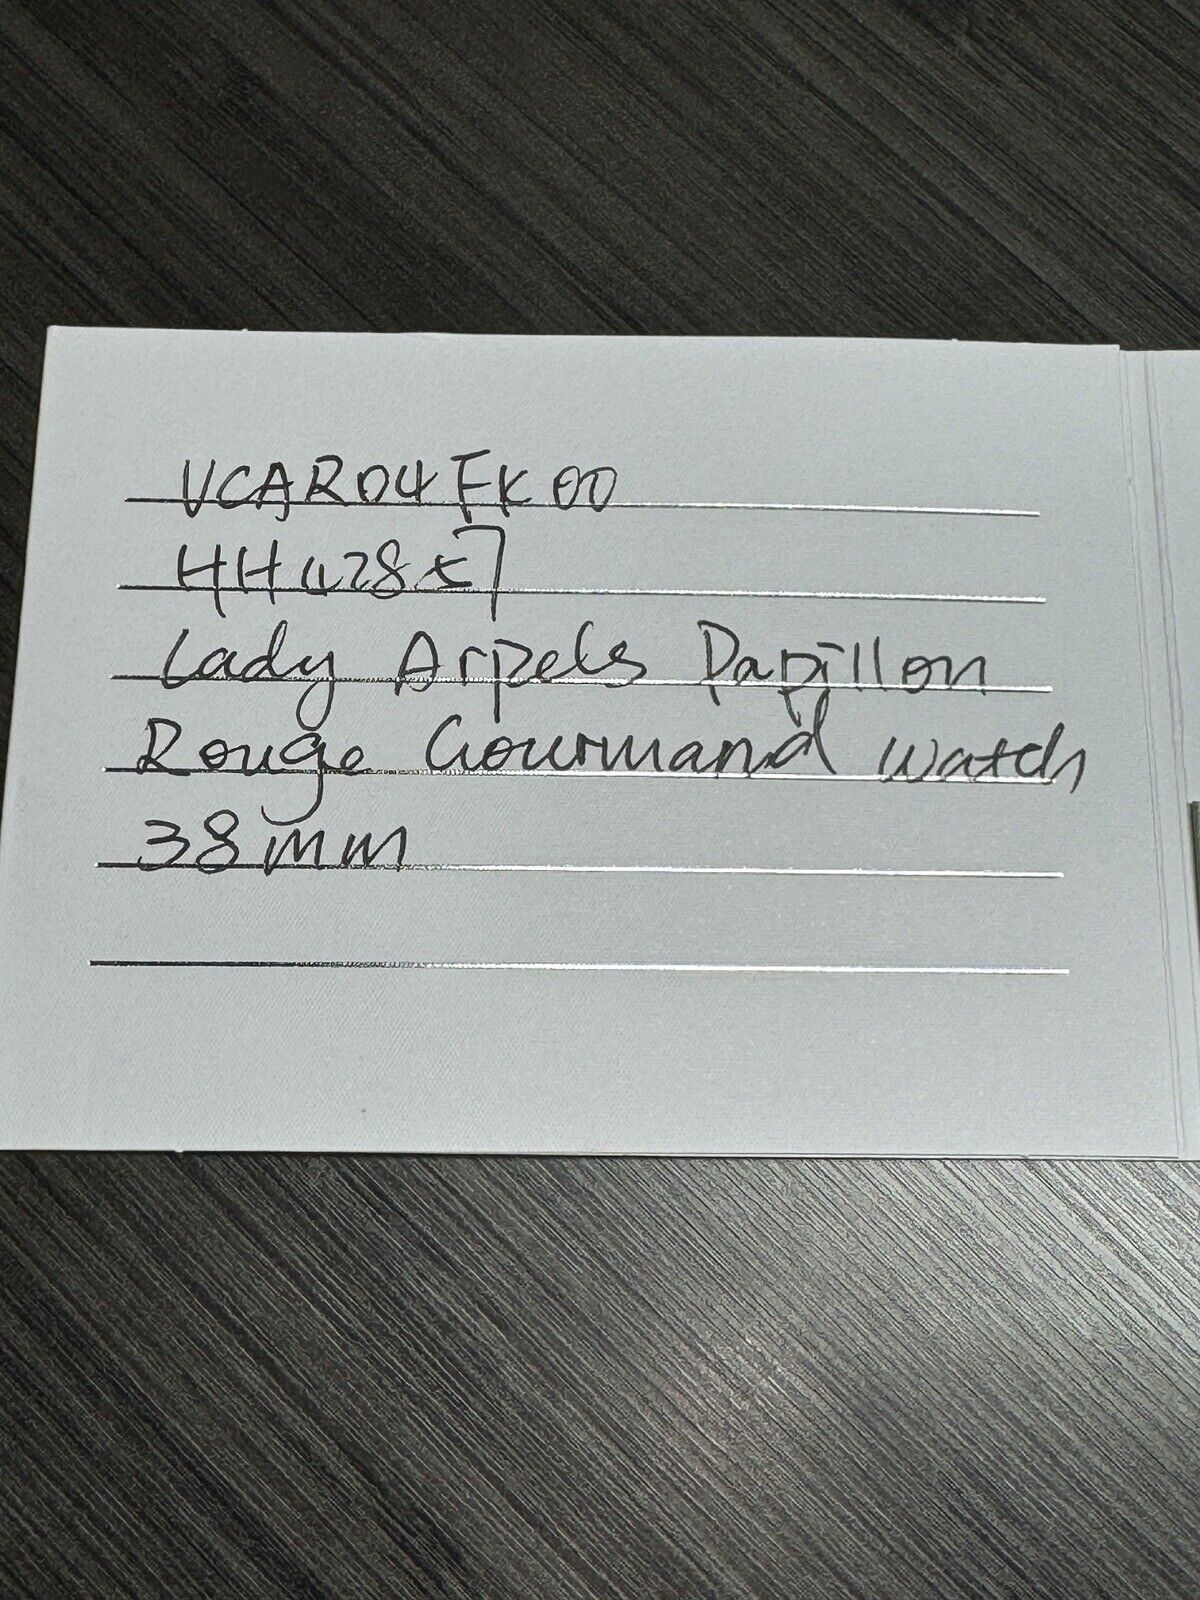 VCAR04FK00
HH42857
Lady Arpels Papillon
Rouge Gourmand watch
38mm